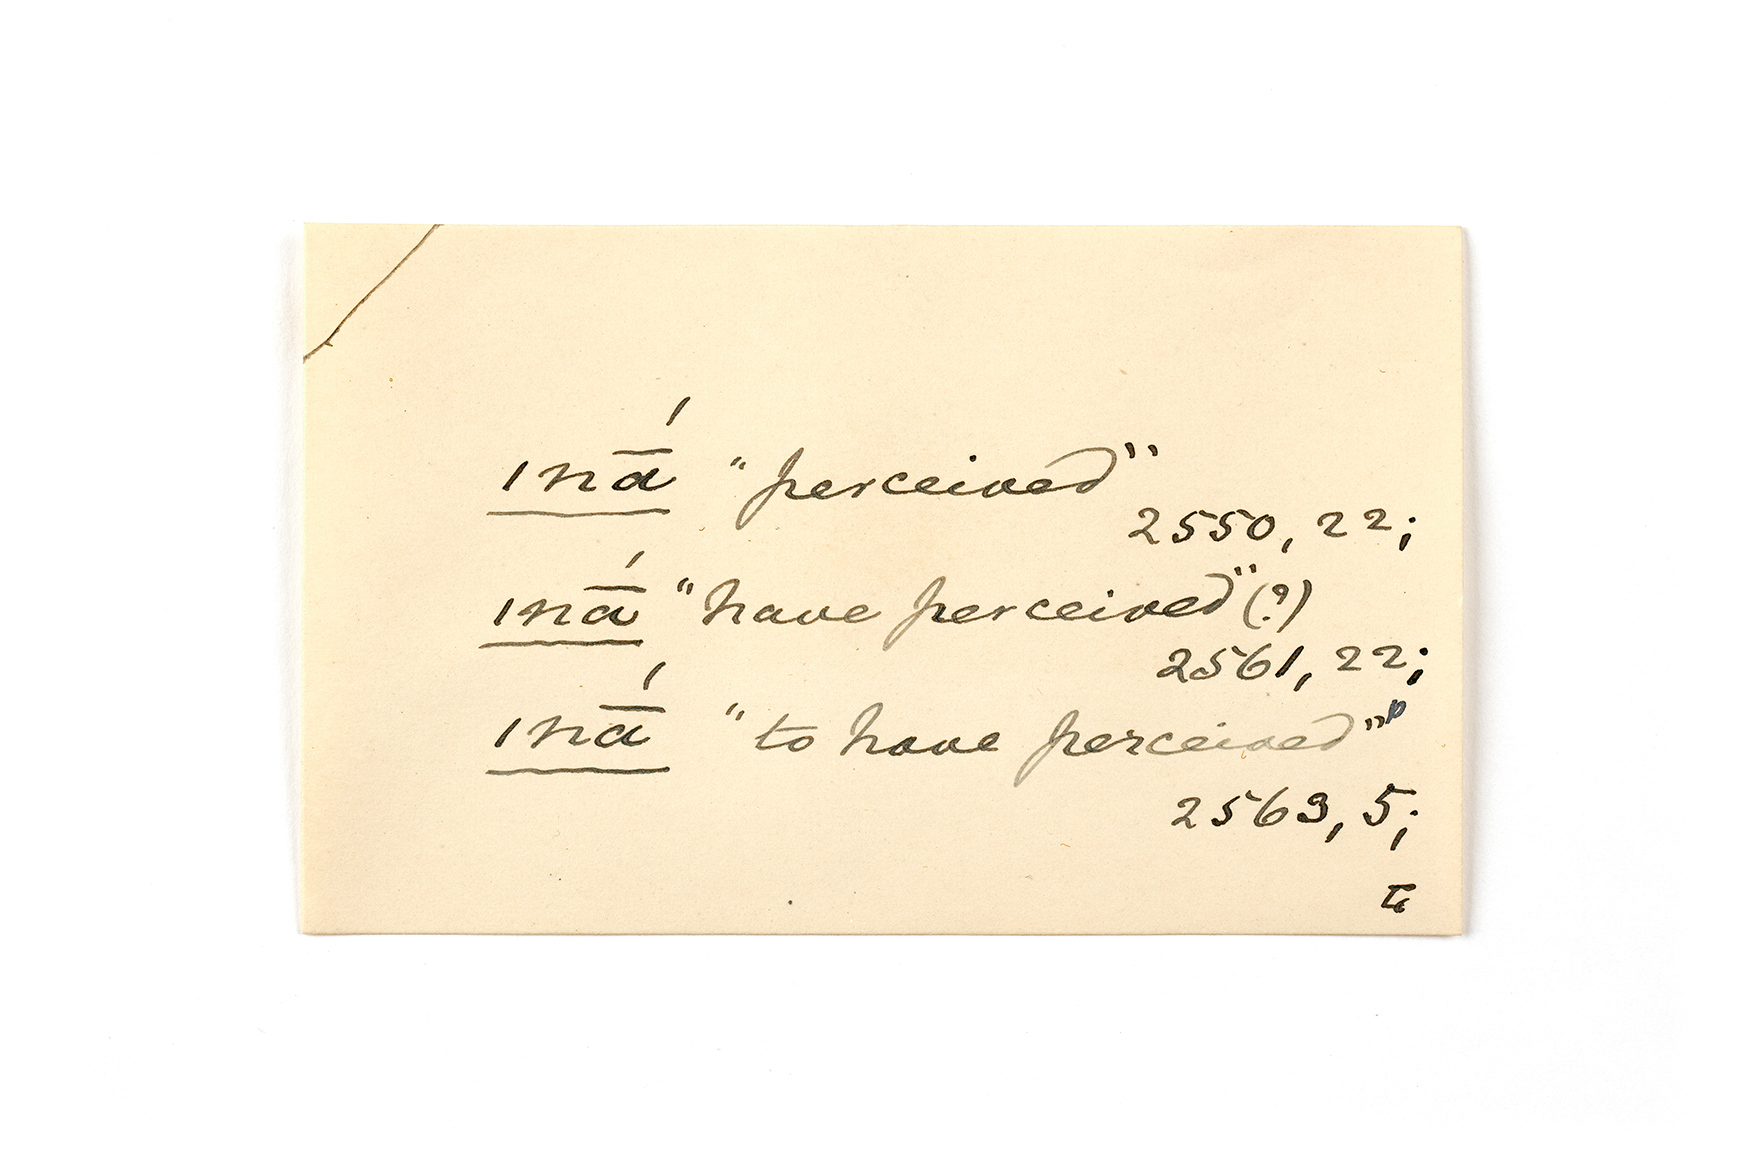 ınā́ "perceived"
2550, 22;
ınā́ "have perceived" (?)
2561, 22;
ınā́ "to have perceived"
2563, 5;